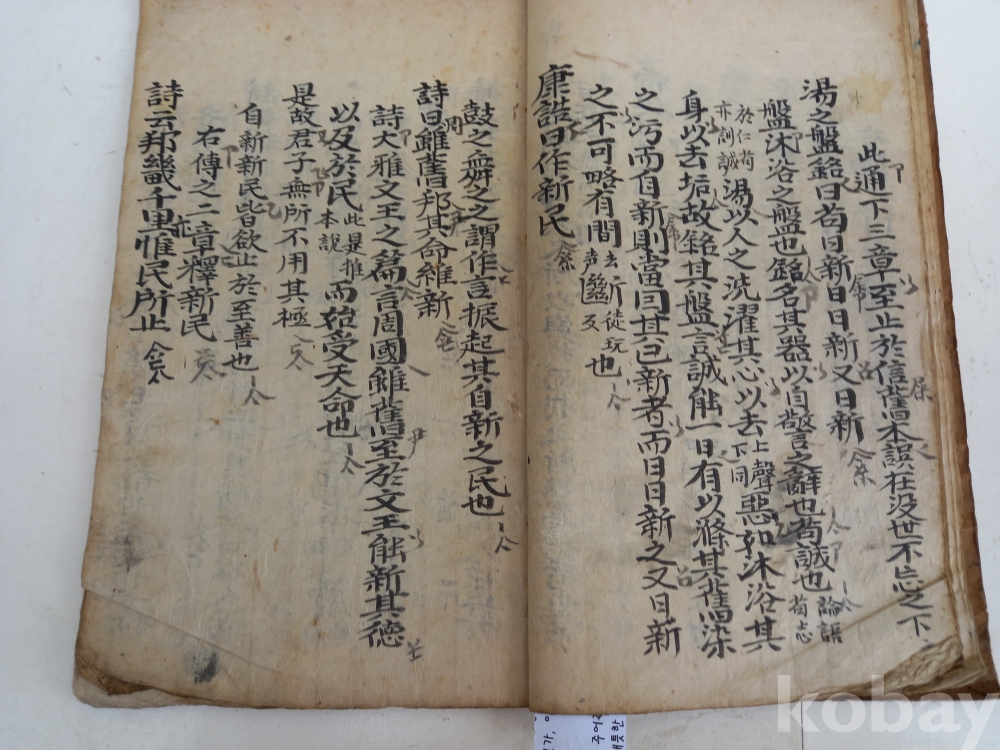 此通下三章至止於信舊本誤在沒世不忘之下
湯之盤銘曰苟日新日日新又日新
盤沐浴之盤也銘名其器以自警之辭也苟誠也論語苟志
於仁苟亦訓誠湯以人之洗濯其心以去上聲下同惡如沐浴其
身以去垢故銘其盤言誠能一日有以滌其舊染
之污而自新則當因其已新者而日日新之又日新
之不可略有間去声斷徒玩反也
康誥曰作新民
鼓之舞之之謂作言振起其自新之民也
詩曰周雖舊邦其命維新
詩大雅文王之篇言周國雖舊至於文王能新其德
以及於民此是推本說而始受天命也
是故君子無所不用其極
自新新民皆欲止於至善也
右傳之二章釋新民
詩云邦畿千里惟民所止
kobay